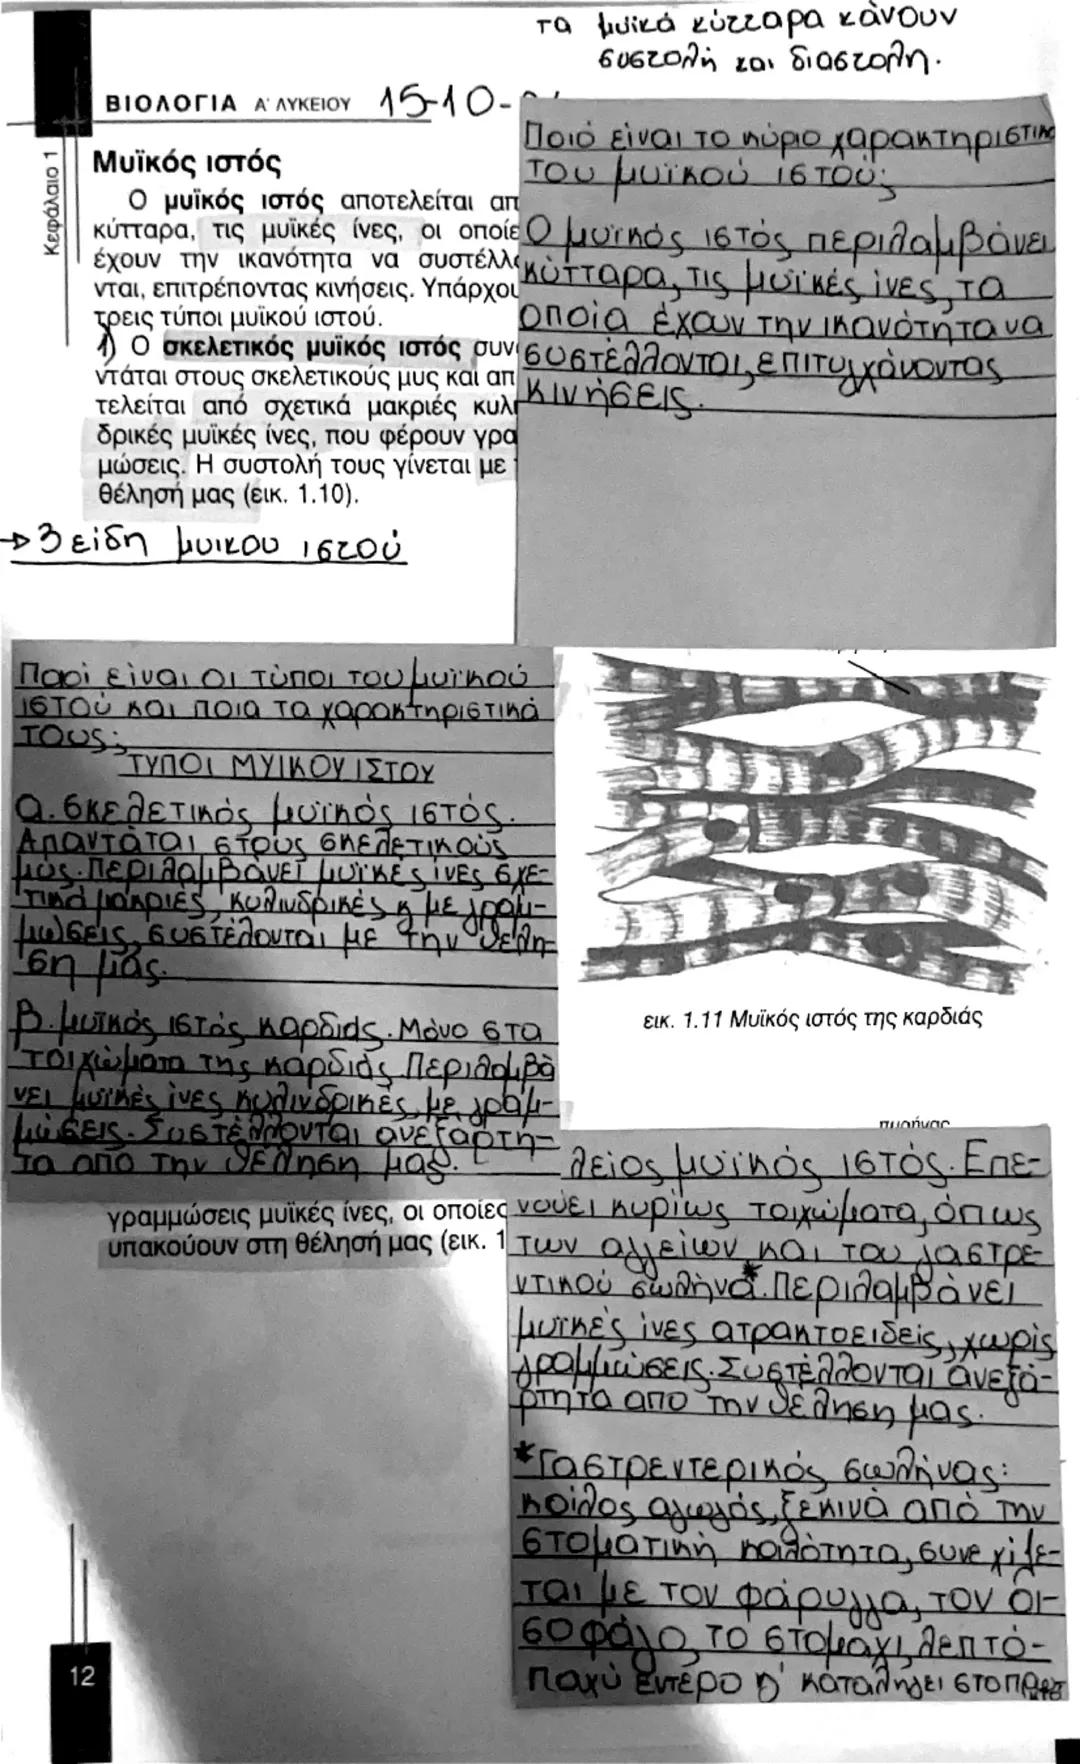 τα μυϊκά κύτταρα κάνουν
συστολή και διαστολή.
ΒΙΟΛΟΓΙΑ Α΄ ΛΥΚΕΙΟΥ 15-10-
Κεφάλαιο 1
Μυϊκός ιστός
Ο μυϊκός ιστός αποτελείται απ
κύτταρα, τις μυϊκές ίνες, οι οποίε
έχουν την ικανότητα να συστέλλ
νται, επιτρέποντας κινήσεις. Υπάρχου
τρεις τύποι μυϊκού ιστού.
1) Ο σκελετικός μυϊκός ιστός συν
ντάται στους σκελετικούς μυς και απ
τελείται από σχετικά μακριές κυλι
δρικές μυϊκές ίνες, που φέρουν γρα
μώσεις. Η συστολή τους γίνεται με
θέλησή μας (εικ. 1.10).
→ 3 είδη μυικου ιστού
Ποιό είναι το κύριο χαρακτηριστικό
του μυϊκού ιστού;
Ο μυϊκός ιστός περιλαμβάνει
κύτταρα, τις μυϊκές ίνες, τα
οποία έχουν την ικανότητα να
συστέλλονται, επιτυγχάνοντας
κινήσεις.
Ποοί είναι οι τύποι του μυϊκού
ιστού και ποια τα χαρακτηριστικά
τους;
ΤΥΠΟΙ ΜΥΙΚΟΥ ΙΣΤΟΥ
α. σκελετικός μυϊκός ιστός.
Απαντάται στους σκελετικούς
μυς. Περιλαμβάνει μυϊκές ίνες σχε-
τικά μακριές, κυλινδρικές κ με γραμ-
μώσεις, συστέλονται με την θέλη-
ση μας.
β. μυϊκός ιστός καρδιάς. Μόνο στα
τοιχώματα της καρδιάς Περιλαμβά
νει μυϊκές ίνες κυλινδρικές, με γραμ-
μώσεις. Συστέλλονται ανεξάρτη-
τα από την θέληση μας.
εικ. 1.11 Μυϊκός ιστός της καρδιάς
πυρήνας
γραμμώσεις μυϊκές ίνες, οι οποίες
υπακούουν στη θέλησή μας (εικ. 1
λείος μυϊκός ιστός. Επε-
νδύει κυρίως τοιχώματα, όπως
των αγγείων και του γαστρε-
ντικού σωλήνα*. Περιλαμβάνει
μυϊκές ίνες ατρακτοειδείς, χωρίς
γραμμώσεις. Συστέλλονται ανεξά-
ρτητα από την θέληση μας.
*Γαστρεντερικός σωλήνας:
κοίλος αγωγός, ξεκινά από την
στοματική κοιλότητα, συνεχίζε-
ται με τον φάρυγγα, τον οι-
σοφάγο, το στομάχι, λεπτό-
παχύ έντερο κ' καταλήγει στο
12